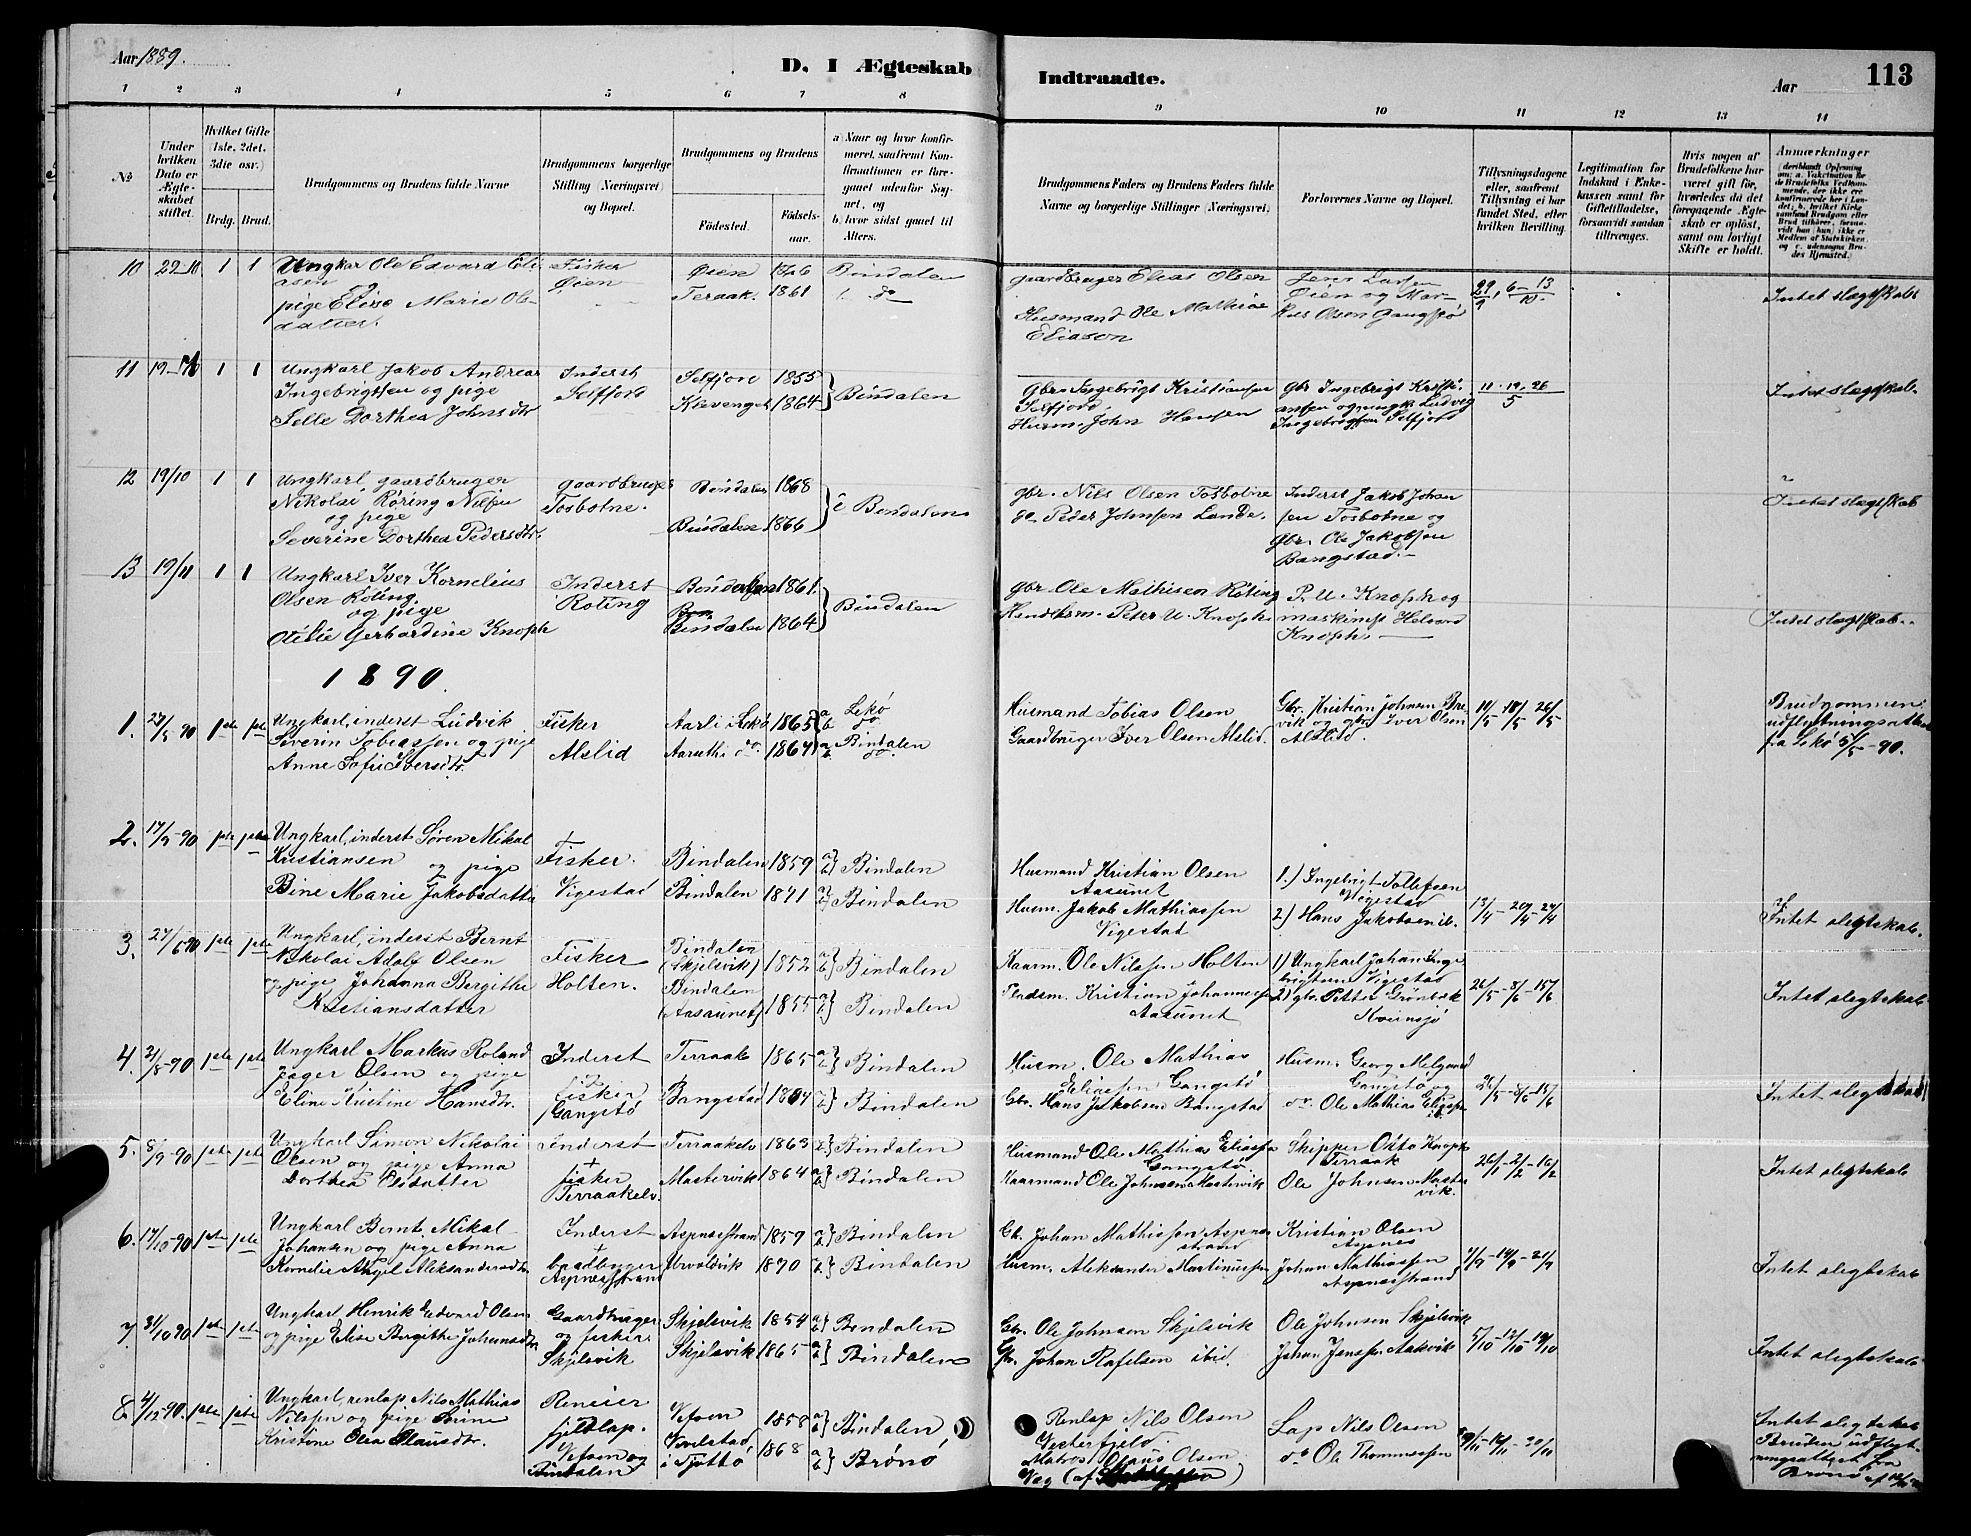 Aar 1889.
D. I Ægteskab
Indtraadte.
Aar
113
1 2 3 4 5 6 7 8 9 10 11 12 13 14
No.
Under hvilken Dato er Ægteskabet stiftet.
Hvilket Gifte (1ste, 2det, 3die osv.)
Brdg. Brud.
Brudgommens og Brudens fulde Navne
Brudgommens borgerlige Stilling (Næringsvei) og Bopæl.
Brudgommens og Brudens
Fødested.
Fødsels-aar.
a) Naar og hvor konfirmeret, saafremt Konfirmationen er foregaaet udenfor Sognet, og
b) hvor sidst gaaet til Alters.
Brudgommens Faders og Brudens Faders fulde Navne og borgerlige Stillinger (Næringsvei)
Forlovernes Navne og Bopæl.
Tillysningsdagene eller, saafremt Tillysning ei har fundet Sted, efter hvilken Bevilling.
Legitimation for Indskud i Enkekassen samt for Giftetilladelse, forsaavidt saadan tiltrænges.
Hvis nogen af Brudefolkene har været gift før, hvorledes da det foregaaende Ægteskab er opløst, samt om lovligt Skifte er holdt.
Anmærkninger
10 22-10 1 1 Ungkar Ole Edvard Eliasen
pige Elise Marie Olsdatter.
Fisker Øien
Øien 1826
Teraak. 1861
Bindalen
do
gaardbruger Elias Olsen
Husmand Ole Mathias Eliason
Jens Larsen Øien og Markus Olsen Gangstø
29/9, 6-13/10.
Intet slægtskab
11 19-5/6 1 1 Ungkarl Jakob Andreas
Ingebrigtsen og pige
Selle Dorthea Johnsdtr
Inderst Selfjord
Selfjord 1855
Klevenget 1864
Bindalen
gbr. Ingebrigt Kristiansen Selfjord,
Husm. John Hansen
gbr Ingebrigt Kristiansen og ungk. Ludvig Ingebrigtsen Selfjord
11.19.26/5
Intet slægtskab.
12 19/10 1 1 Ungkarl, gaardbruger
Nikolai Røring Nilsen
og pige
Severine Dorthea Pedersdtr.
gaardbruger Tosbotne.
Bindalen 1868
Bindalen 1866
i Bindalen
gbr. Nils Olsen Tosbotne
do Peder Johnsen Lande.
Inderst Jakob Johansen Tosbotne og gbr. Ole Jakobsen Bangstad.
Intet slægtskab
13 19/11 1 1 Ungkarl Iver Kornelius
Olsen Røting
og pige
Otilie Gerhardine Knoph
Inderst Røting
Bindalen 1861
Bindalen 1864
Bindalen
gbr. Ole Mathisen Røting
Handelsm. Peter U. Knoph
P. U. Knoph og maskinist Helvard Knoph.
Intet slægtskab.
1890.
1. 27/5 90 1ste 1ste Ungkarl, inderst Ludvik
Severin Tobiassen og pige
Anne Sofie Iversdtr.
Fisker Alslid
Aarli i Lekø 1865
1867
a Lekø
b do
a Bindalen
b do.
Husmand Tobias Olsen
Gaardbruger Iver Olsen Alslid.
Gbr. Kristian Johnsen Brevik og gbr. Iver Olsen Alslid.
11/5 18/5 26/5
Brudgommen udflytningsattest fra Lekø 5/5-90.
2. 17/7-90 1ste 1ste Ungkarl, inderst Søren Mikal
Kristiansen og pige
Bine Marie Jakobsdatter
Fisker. Vigestad
Bindalen 1859
Bindalen 1871
a b Bindalen
a b Bindalen
Husmand Kristian Olsen Aasunet
Husm. Jakob Mathiassen Vigestad
1.) Ingebrigt Tollefsen Vigestad
2) Hans Jakobsen ib.
13/4-20/4-27/4
Intet slegtskab.
3. 27/6 90 1ste 1ste Ungkarl, inderst Bernt
Nikolai Adolf Olsen
og pige Johanna Bergithe
Kristiansdatter
Fisker Holten.
Bindalen (Skjelsvik) 1852
Bindalen (Aasaunet) 1855
a b Bindalen
a b Bindalen
Kaarm. Ole Nilssen Holten
Pladsm. Kristian Johannessen Aasunet
1) Ungkarl Johan Ingebrigtsen Vigestad
2) gbr. Petter Grønbæk
26/5-8/6-15/6
Intet slegtskab
4. 21/8-90 1ste 1ste Ungkarl Markus Roland
Jager Olsen og pige
Eline Kristine Hansdtr.
Inderst Fisker Gangstø
Terraak 1865
Bangstad 1864
a b Bindalen
a b Bindalen
Husm. Ole Mathias Eliassen Gangstø
Gbr. Hans Jakobsen Bangstad
Husm. Georg Melgaard Gangstø og
do Ole Mathias Eliassen ib
26/5-8/6-15/6
Intet slegtskab
5. 8/9-90 1ste 1ste Ungkarl Simon Nikolai
Olsen og pige Anna
Dorthea Olsdatter
Inderst + fisker Terraakelv.
Terraakelv 1863
Mastervik 1864
a b Bindalen
a b Bindalen
Husmand Ole Mathias Eliassen Gangstø
Kaarmand Ole Johnsen Mastervik
Skipper Otto Knoph Terraak
Ole Johnsen Mastervik.
26/1-2/2-16/2
Intet slegtskab
6. 17/10-90 1ste 1ste Ungkarl Bernt Mikal
Johansen og pige Anna
Kornelie Angel Aleksandersdtr.
Inderst + baadbygger Aspnesstrand
Aspnesstrand 1859
Horvaldvik 1870
a b Bindalen
a b Bindalen
Gb. Johan Mathiassen Aspnesstrand
Husm. Aleksander Martinussen
Kristian Olsen Aspnes
Johan Mathiassen Aspnesstrand
7/9-14/9-21/9
Intet slegtskab
7. 31/10 90 1ste 1ste Ungkarl, Henrik Edvard Olsen
og pige Elise Bergithe Johansdtr.
Gaardbruger og fisker. Skjelsvik
Skjelsvik 1854
Skjelsvik 1865
a b Bindalen
a b Bindalen
Gbr. Ole Johnsen Skjelsvik
Gbr. Johan Rafelsen ibid.
Ole Johnsen Skjelsvik
Johan Jenssen Aakvik
5/10-12/10-19/10
Intet slegtskab
8. 4/12-90. 1ste 1ste Ungkarl, renlap, Nils Mathias
Nilssen og pige Trine
Kristine Olea Olausdtr.
Reneier fjeldlap. Vefsen og Bindalen
Vefsen 1858
i Tjøttø 1868
a b Bindalen
a b Brønø
Renlap Nils Olsen Vesterfjeld.
Matros Olaus Olsen
Lap Nils Olsen
do Ole Thommessen
9/11-16/11-20/11
Intet slegtskab
Bruden udflytningsattest fra Brønø